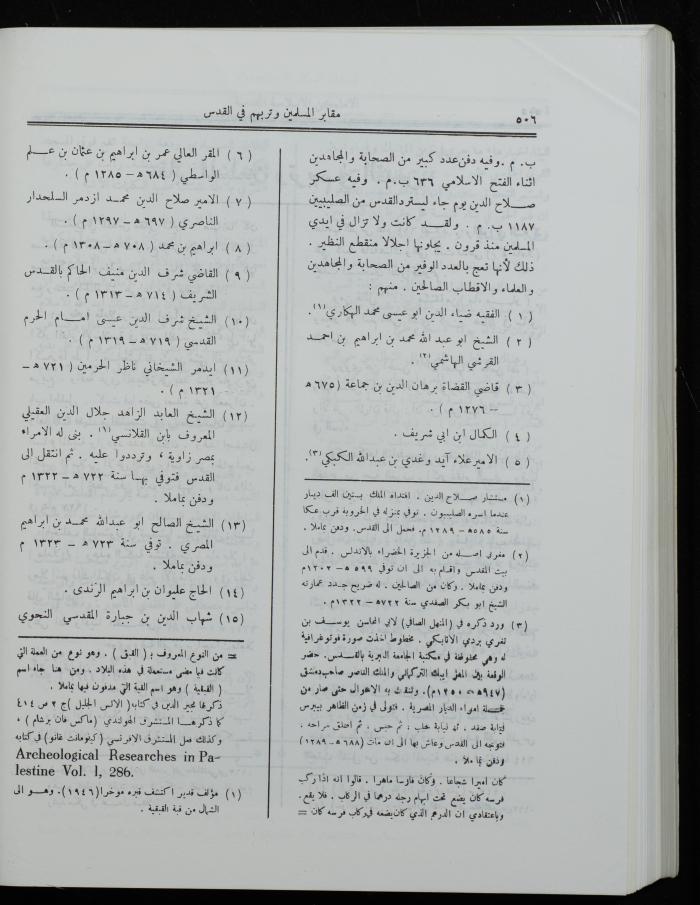 ٥٠٦
مقابر المسلمين وتربهم في القدس
ب. م . وفيه دفن عدد كبير من الصحابة والمجاهدين
اثناء الفتح الاسلامي ٦٣٦ ب.م . وفيه عسكر
صلاح الدين يوم جاء ليسترد القدس من الصليبيين
١١٨٧ ب. م . ولقد كانت ولا تزال في ايدي
المسلمين منذ قرون . يجلونها اجلالا منقطع النظير .
ذلك لأنها تعج بالعدد الوفير من الصحابة والمجاهدين
والعلماء والاقطاب الصالحين . منهم :
( ١ ) الفقيه ضياء الدين ابو عيسى محمد الهكاري (١).
( ٢ ) الشيخ ابو عبد الله محمد بن ابراهيم بن احمد
القرشي الهاشمي (٢) .
( ٣ ) قاضي القضاة برهان الدين بن جماعة (٦٧٥ ه
– ١٢٧٦ م ) .
( ٤ ) الكمال ابن ابي شريف .
( ٥ ) الامير علاء آيد وغدي بن عبدالله الكبكي (٣).
(١) مستشار صلاح الدين . افتداه الملك بستين الف دينار
عندما اسره الصليبيون . توفي بمنزله في الخروبة قرب عكا
سنة ٥٨٥ ه – ١٢٨٩ م. فحمل الى القدس. ودفن بماملا .
(٢) مغربي اصله من الجزيرة الخضراء بالاندلس . قدم الى
بيت المقدس واقام به الى ان توفي ٥٩٩ ه – ١٢٠٢م
ودفن بماملا . وكان من الصالحين . له ضريح جدد عمارته
الشيخ ابو بكر الصفدي سنة ٧٢٢ ه – ١٣٢٢م .
(٣) ورد ذكره في (المنهل الصافي) لابي المحاسن يوسف بن
تغري بردي الاتابكي . مخطوط اخذت صورة فوتوغرافية
له وهي محفوظة في مكتبة الجامعة العبرية بالقدس. حضر
الوقعة بين المعز ايبك التركماني والملك الناصر صاحب دمشق
الاحوال حتى صار من
امراء الديار المصرية . فتولى في زمن الظاهر بيبرس
نيابة صفد . ثم نيابة حلب ; ثم حبس . ثم اطلق سراحه .
فتوجه الى القدس وعاش بها الى ان مات (٦٨٨ ه – ١٢٨٩)
ودفن بماملا .
كان اميرا شجاعا . وكان فارسا ماهرا . قالوا انه اذا ركب
فرسه كان يضع تحت ابهام رجله درهما في الركاب . فلا يقع .
وباعتقادي ان الدرهم الذي كان يضعه في ركاب فرسه كان =
( ٦ ) المقر العالي عمر بن ابراهيم بن عثمان بن علم
الواسطي ( ٦٨٤ ه – ١٢٨٥ م ) .
( ٧ ) الامير صلاح الدين محمد ازدمر السلحدار
الناصري ( ٦٩٧ ه – ١٢٩٧ م ) .
( ٨ ) ابراهيم بن محمد ( ٧٠٨ ه – ١٣٠٨ م ) .
( ٩ ) القاضي شرف الدين منيف الحاكم بالقدس
الشريف ( ٧١٤ ه – ١٣١٣ م ) .
(١٠) الشيخ شرف الدين عيسى امام الحرم
القدسي ( ٧١٩ ه – ١٣١٩ م ) .
(١١) ايدمر الشيخاني ناظر الحرمين ( ٧٢١ ه –
١٣٢١ م ) .
(١٢) الشيخ العابد الزاهد جلال الدين العقيلي
المعروف بابن القلانسي (١) . بنى له الامراء
بمصر زاوية ، وترددوا عليه . ثم انتقل الى
القدس فتوفي بها سنة ٧٢٢ ه – ١٣٢٢ م
ودفن بماملا .
(١٣) الشيخ الصالح ابو عبدالله محمد بن ابراهيم
المصري . توفي سنة ٧٢٣ ه – ١٣٢٣ م
ودفن بماملا .
(١٤) الحاج عليوان بن ابراهيم الرندى .
(١٥) شهاب الدين بن جبارة المقدسي النحوي
= من النوع المعروف ب ( القبق ) . وهو نوع من العملة التي
كانت فيما مضى مستعملة في هذه البلاد . ومن هنا جاء اسم
( القبقبية ) وهو اسم القبة التي مدفون فيها بماملا .
ذكرها مجير الدين في كتابه( الانس الجليل )ج ٢ ص ٤١٤
كما ذكرها المستشرق الهولندي (ماكس فان برشام ) .
وكذلك فعل المستشرق الافرنسي ( كليرمانت غانو) في كتابه
Archeological Researches in Pa-
lestine Vol. I, 286.
(١) مؤلف قدير اكتشف قبره مؤخرا (١٩٤٦). وهو الى
الشمال من قبة القبقبية .